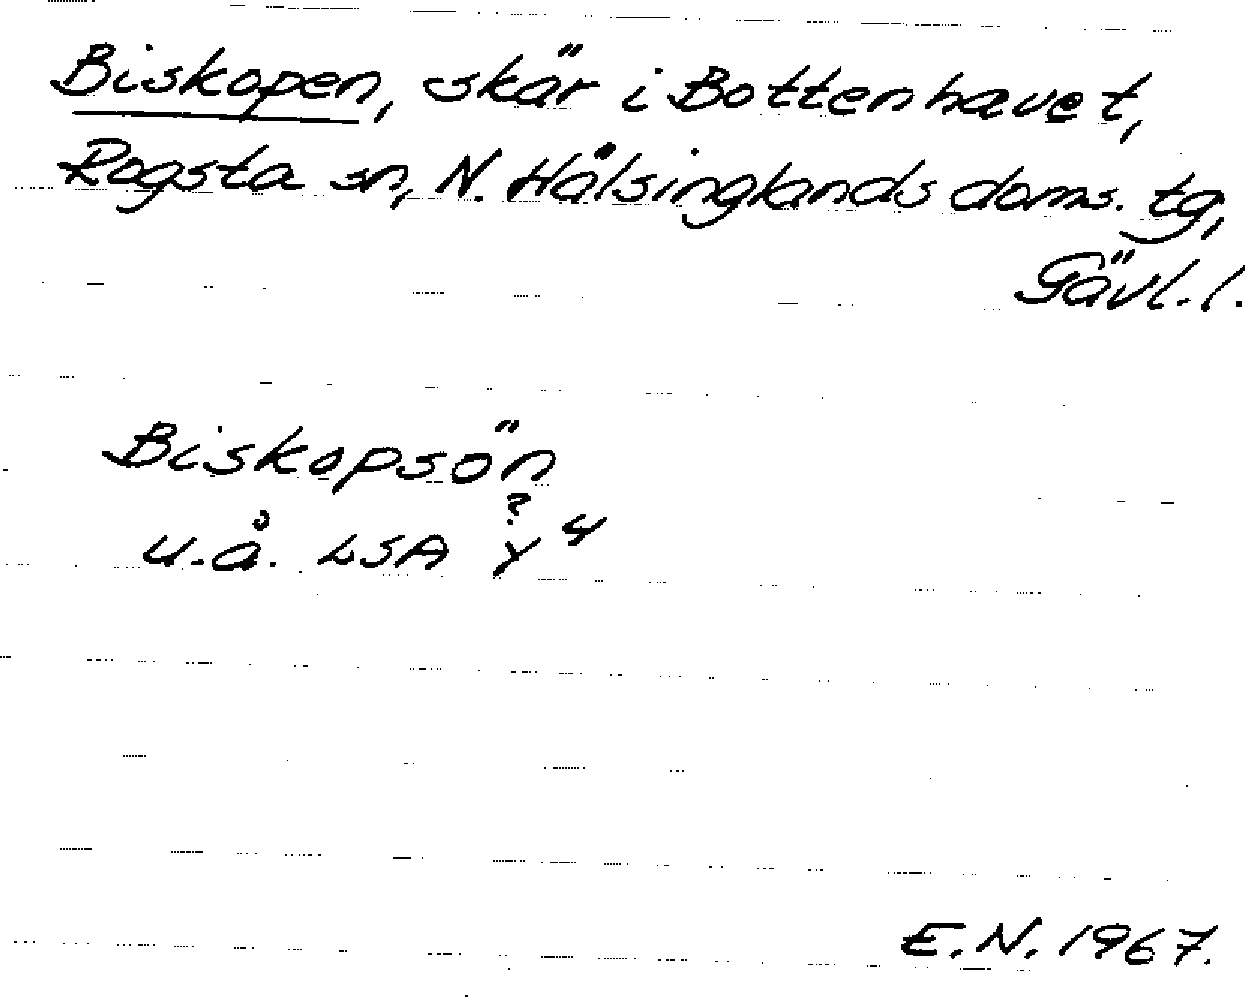 Biskopen, skär i Bottenhavet,
Rogsta sn, N. Hälsinglands doms. tg,
Gävl. l.
Biskopsön
?
u.å. LSA Y 4
E.N. 1967.